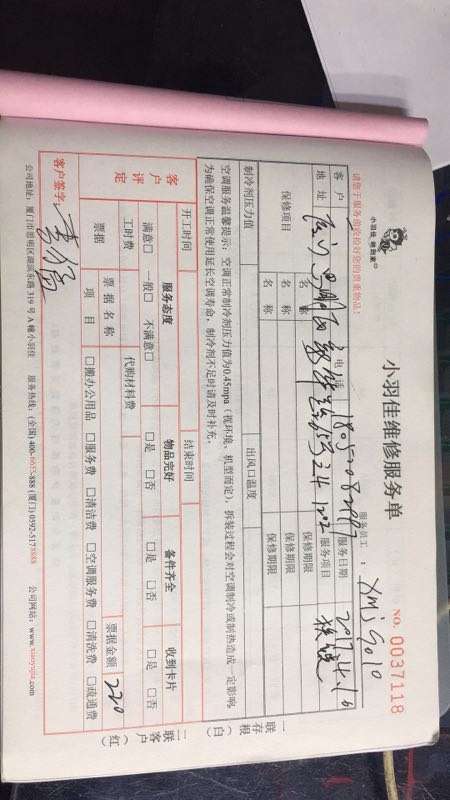 小羽佳 使到家
小羽佳维修服务单
NO. 0037118
请您于服务前安捡好您的贵重物品:
服务员工:
客户
电话
服务日期
2017.4.16
地址
服务项目
保修项目
名称
保修期限
名称
保修期限
名称
保修期限
制冷剂压力值
出风口温度
空调服务温馨提示:空调正常制冷剂压力值为0.45mpa(视环境、机型而定),拆装过程会对空调制冷或制热造成一定影响,
为确保空调正常使用延长空调寿命,制冷剂不足时请及时补充。
开工时间
结束时间
客户评定
服务态度
物品完好
备件齐全
收到卡片
满意□ 一般□ 不满意□
□是 □否
□是 □否
□是 □否
工时费
代购材料费
票据
票据名称
票据金额
220
项目
□搬办公用品 □服务费 □清洁费 □空调服务费 □清洗费 □疏通费
客户签字:
公司地址:厦门市思明区湖滨南路 319 号 A 幢小羽佳
服务热线:(全国) 400-6633-888 (厦门) 0592-5178888
公司网站:www.xiaoyujia.com
一联存根(白)
二联客户(红)